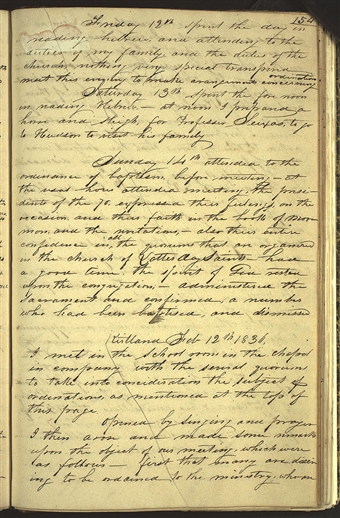 154
Friday 12th spent the day in
reading hebrew, and attending to the
duties of my family, and the duties of the
church, nothing very special transpired
meet this evening to make arangements concerning
ordinations
Saturday 13th spent the fore noon
in reading Hebrew. — at noon I prepared a
horse and sleigh, for Professor Seixas, to go
to Hudson to visit his family
Sunday 14th attended to the
ordinance of baptism, before meeting — at
the usual hour attended meeting, the presi-
dents of the 70, expressed their feelings, on the
occasion, and their faith in the book of Mor-
mon, and the revelations, — also their entire
confidence in all the quorums that are organized
in the church of Latter Day Saints — had
a good time, the spirit of God rested
upon the congregation; — administered the
Sacrament and confirmed, a number
who had been baptised, and dismissed
Kirtland Feb 12th 1836.
I met in the School room in the chapel
in company with the several quorums
to take into concideration the subject of
ordinations, as mentioned at the top of
this page
opened by singing and prayer
I then arose and made some remarks
upon the object of our meeting, which were
as follows — first that many are desir-
ing to be ordained to the ministry, who are